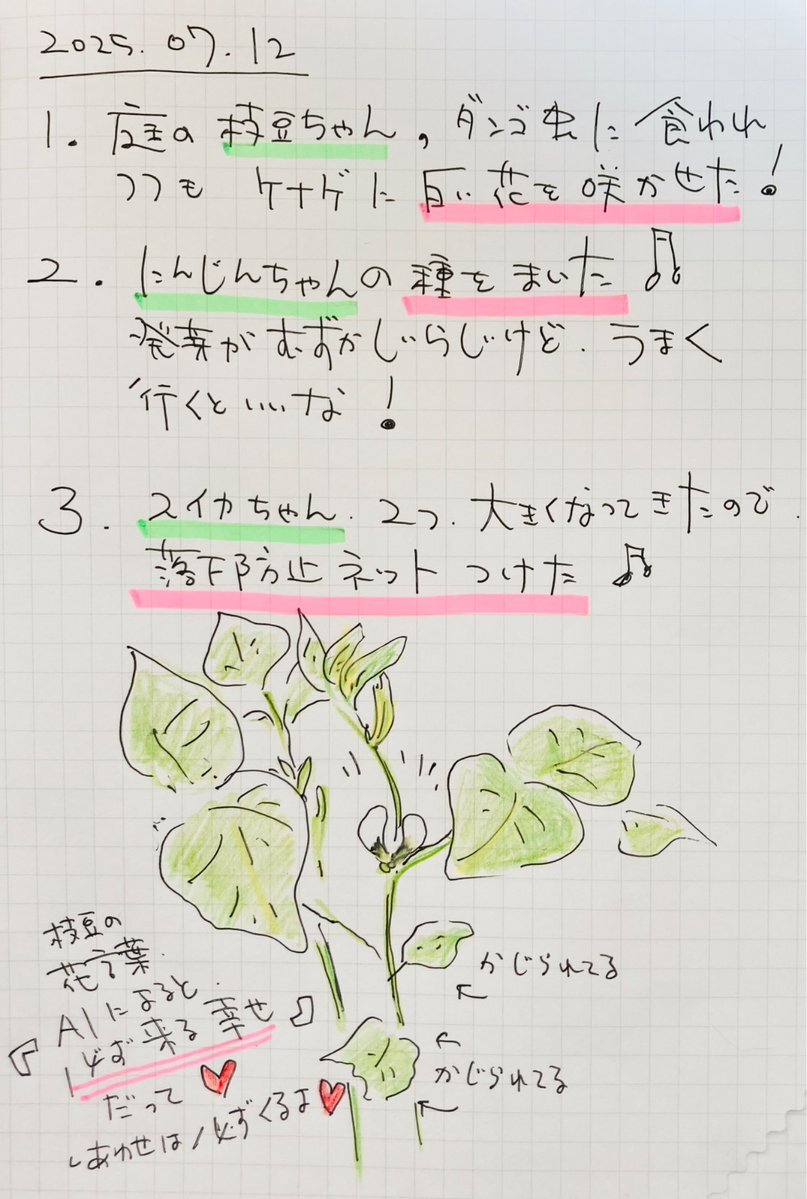 2025.07.12
1. 庭の枝豆ちゃん,ダンゴ虫に食われ
つつもケナゲに白い花を咲かせた!
2. にんじんちゃんの種をまいた♫
発芽がむずかしいらしいけど.うまく
行くといいな!
3. スイカちゃん.2つ.大きくなってきたので.
落下防止ネットつけた♫
枝豆の
花言葉.
AIによると.
『必ず来る幸せ』
だって♥
しあわせは必ずくるよ♥
かじられてる
かじられてる